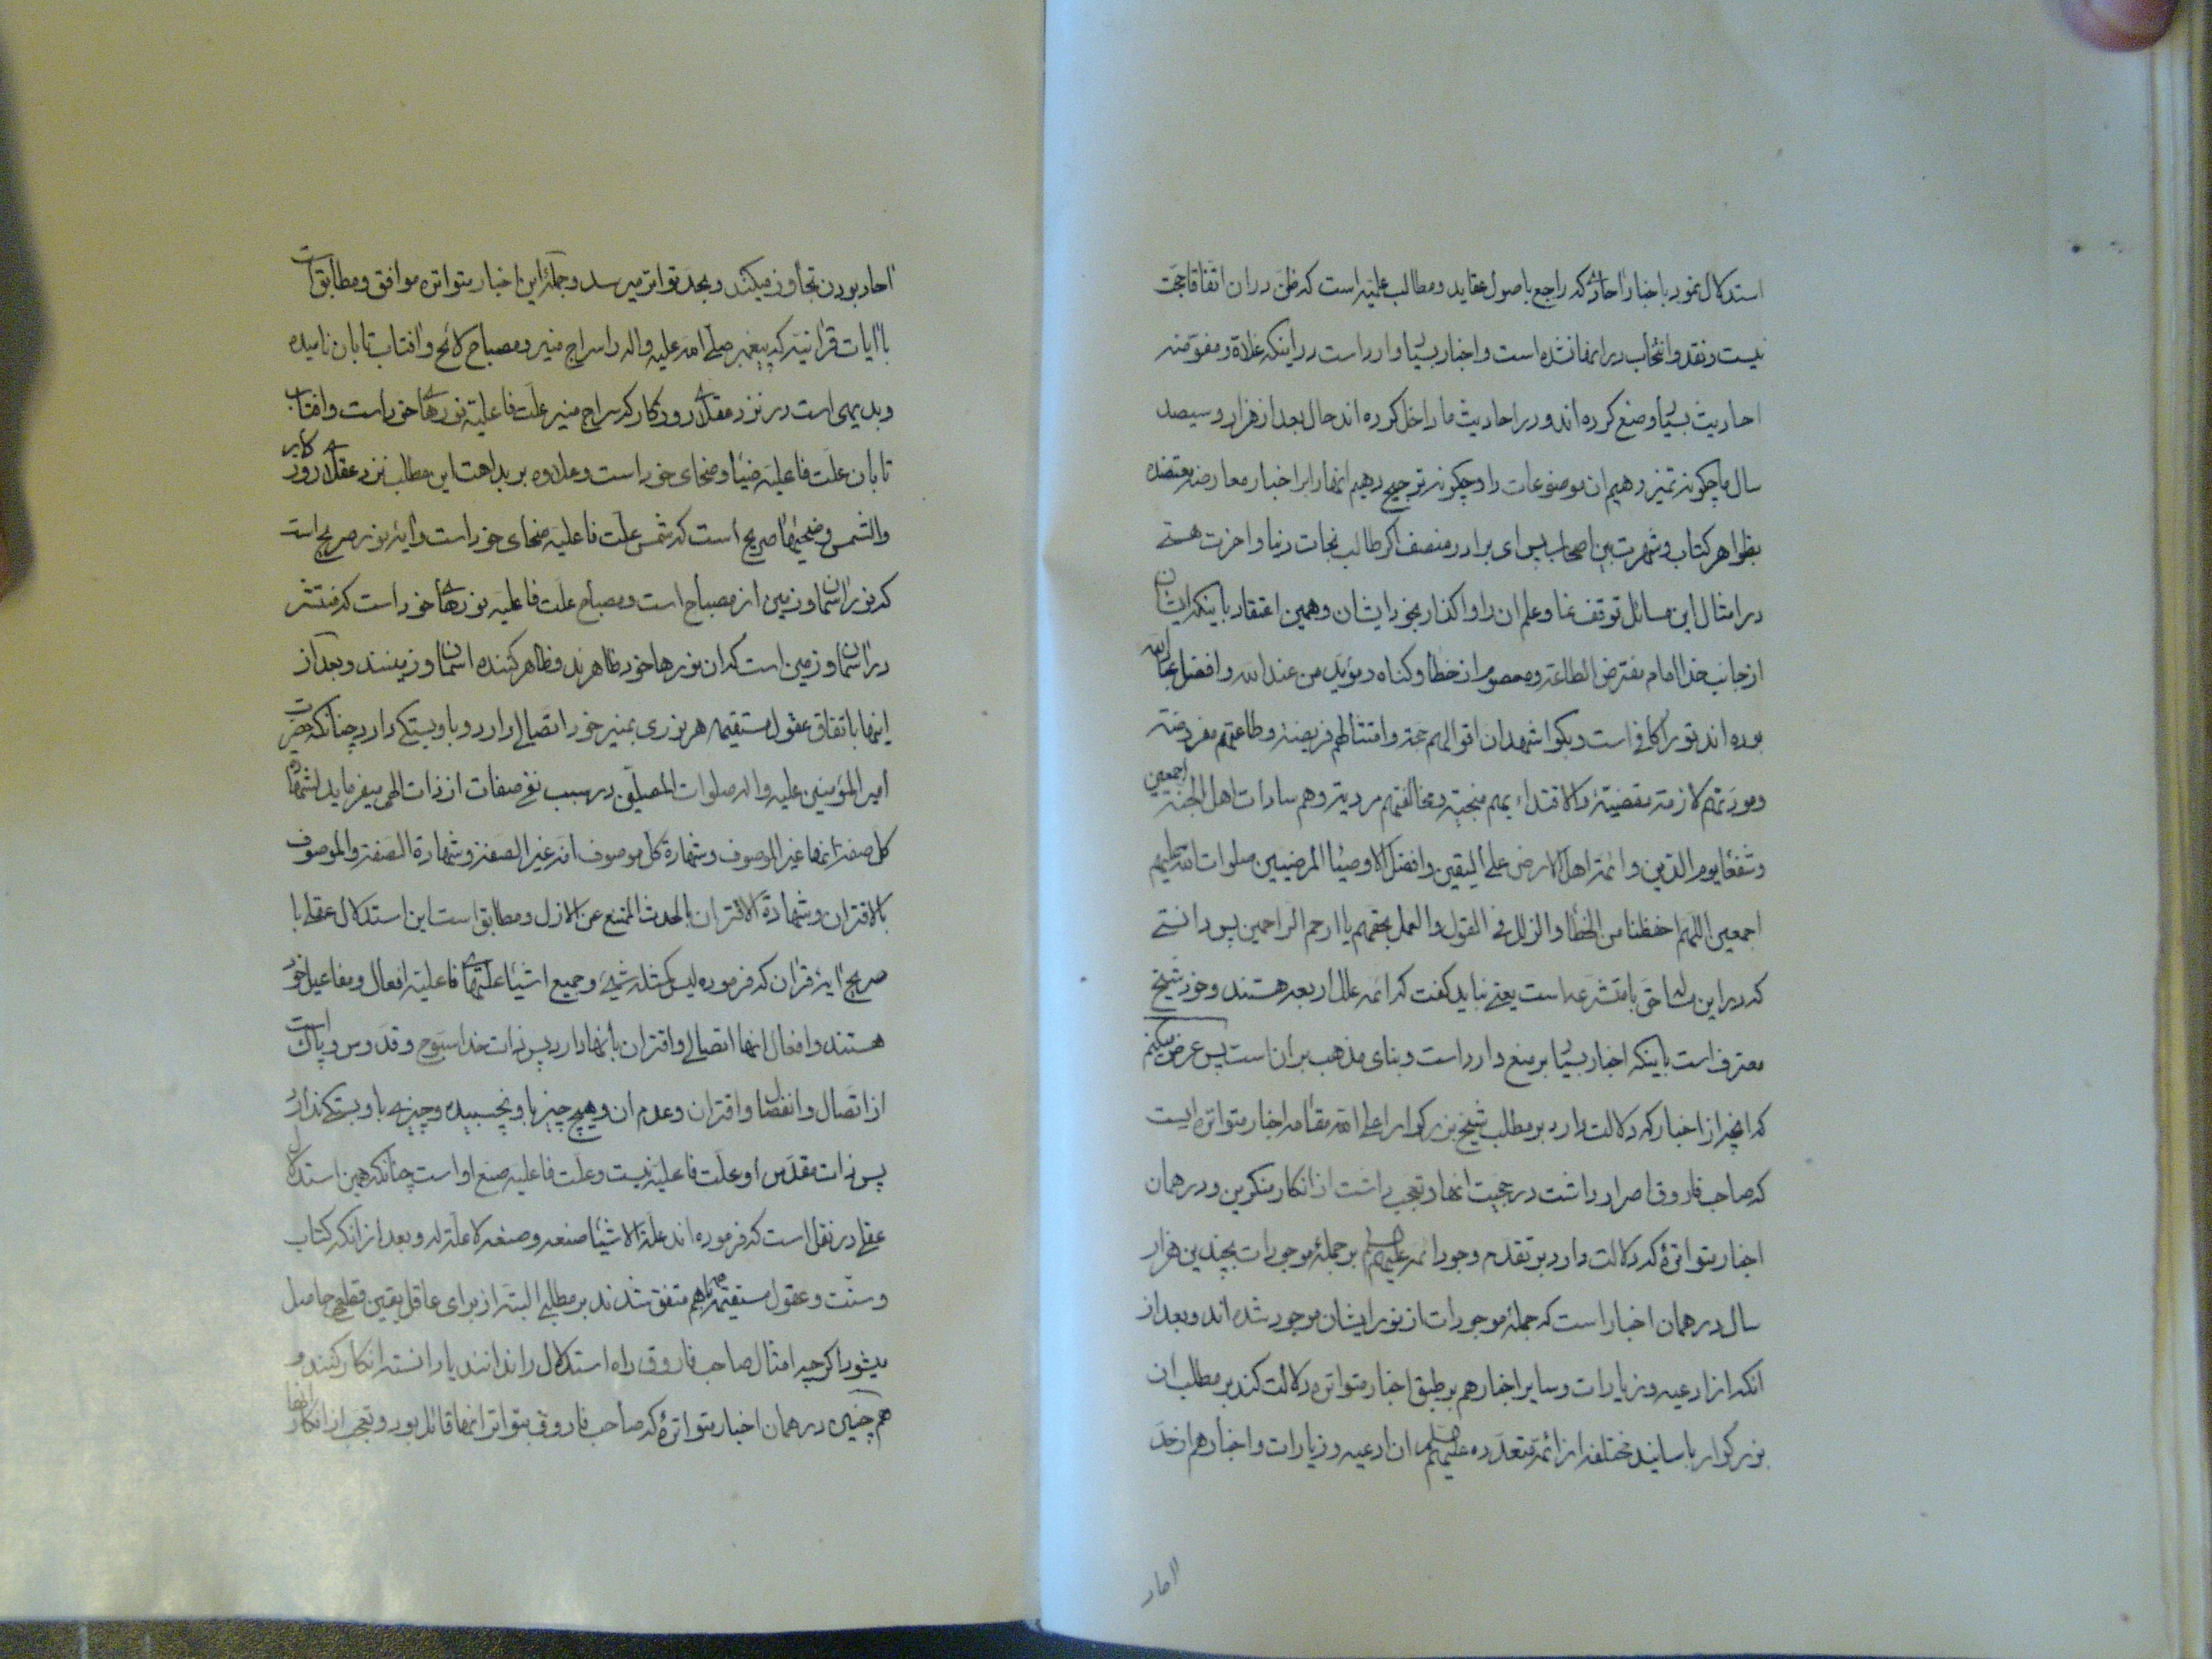 استدلال نمود باخبار احادی که راجع باصول عقاید و مطالب علمیه است که ظن در ان اتفاقا حجت
نیست و نقد و انتخاب در انها نشده است و اخبار بسیار وارد است در اینکه غلاة و مفوضه
احادیث بسیار وضع کرده اند و در احادیث ما داخل کرده اند حال بعد از هزار و سیصد
سال ما چگونه تمیز دهیم ان موضوعات را و چگونه ترجیح دهیم انها را بر اخبار معارضه معتضده
بظواهر کتاب و شهرت بین اصحاب پس ای برادر منصف اگر طالب نجات دنیا و اخرت هستی
در امثال این مسائل توقف نما و علم ان را واگذار بخود ایشان و همین اعتقاد باینکه ایشان
از جانب خدا امام مفترض الطاعة و معصوم از خطا و گناه و مؤید من عند الله و افضل عباد الله
بوده اند تو را کافی است و بگو اشهد ان اقوالهم حجة و امتثالهم فریضة و طاعتهم مفروضة
و مودتهم لازمة مقضیة و الاقتداء بهم منجیة و مخالفتهم مردیة و هم سادات اهل الجنة اجمعین
و شفعاء یوم الدین و ائمة اهل الارض علی الیقین و افضل الاوصیاء المرضیین صلوات الله علیهم
اجمعین اللهم احفظنا من الخطاء و الزلل فی القول و العمل بحقهم یا ارحم الراحمین پس دانستی
که در این مسئله حق با متشرعه است یعنی نباید گفت که ائمه علل اربعه هستند و خود شیخ
معترف است باینکه اخبار بسیار بر منع وارد است و بنای مذهب بر ان است پس عرض میکنم
که انچه از اخبار که دلالت دارد بر مطلب شیخ بزرگوار اعلی الله مقامه اخبار متواتره ایست
که صاحب فاروق اصرار داشت در حجیت انها و تعجب داشت از انکار منکرین و در همان
اخبار متواترهٔ که دلالت دارد بر تقدم وجود ائمه علیهم السلم بر جملهٔ موجودات بچندین هزار
سال در همان اخبار است که جملهٔ موجودات از نور ایشان موجود شده اند و بعد از
انکه از ادعیه و زیارات و سایر اخبار هم بر طبق اخبار متواتره دلالت کند بر مطلب ان
بزرگوار باسانید مختلفه از ائمهٔ متعدده علیهم السلم ان ادعیه و زیارات و اخبار هم از حد
احاد بودن تجاوز میکند و بحد تواتر میرسد و جملهٔ این اخبار متواتره موافق و مطابق است
با ایات قرانیه که پیغمبر صلی الله علیه و اله را سراج منیر و مصباح لائح و افتاب تابان نامیده
و بدیهی است در نزد عقلای روزگار که سراج منیر علت فاعلیهٔ نورهای خود است و افتاب
تابان علت فاعلیهٔ ضیاء و ضحای خود است و علاوه بر بداهت این مطلب نزد عقلای روزگار ایه
والشمس و ضحیها صریح است که شمس علت فاعلیه ضحای خود است و ایهٔ نور صریح است
که نور اسمان و زمین از مصباح است و مصباح علت فاعلیه نورهای خود است که منتشر
در اسمان و زمین است که ان نورها خود ظاهرند و ظاهر کننده اسمان و زمینند و بعد از
اینها باتفاق عقول مستقیمه هر نوری بمنیر خود اتصالی دارد و باو بستگی دارد چنانکه حضرت
امیر المؤمنین علیه و اله صلوات المصلین در سبب نفی صفات از ذات الهی میفرماید لشهادة
کل صفة انها غیر الموصوف و شهادة کل موصوف انه غیر الصفة و شهادة الصفة و الموصوف
بالاقتران و شهادة الاقتران بالحدث الممتنع عن الازل و مطابق است این استدلال عقلی با
صریح ایهٔ قران که فرموده لیس کمثله شیء و جمیع اشیاء علتهای فاعلیه افعال و مفاعیل خود
هستند و افعال انها اتصالی و اقتران بانها دارد پس ذات خدا سبوح و قدوس و پاک است
از اتصال و انفصال و اقتران و عدم ان و هیچ چیز باو نچسبیده و چیزی باو بستگی ندارد
پس ذات مقدس او علت فاعلیه نیست و علت فاعلیه صنع او است چنانکه همین استدلال
عقلی در نقل است که فرموده اند علة الاشیاء صنعه و صنعه لا علة له و بعد از انکه کتاب
و سنت و عقول مستقیمه همه با هم متفق شدند بر مطلبی البته از برای عاقل یقین قطعی حاصل
میشود اگرچه امثال صاحب فاروق راه استدلال را ندانند یا دانسته انکار کنند و
هم چنین در همان اخبار متواترهٔ که صاحب فاروق بتواتر انها قائل بود و تعجب از انکار انها